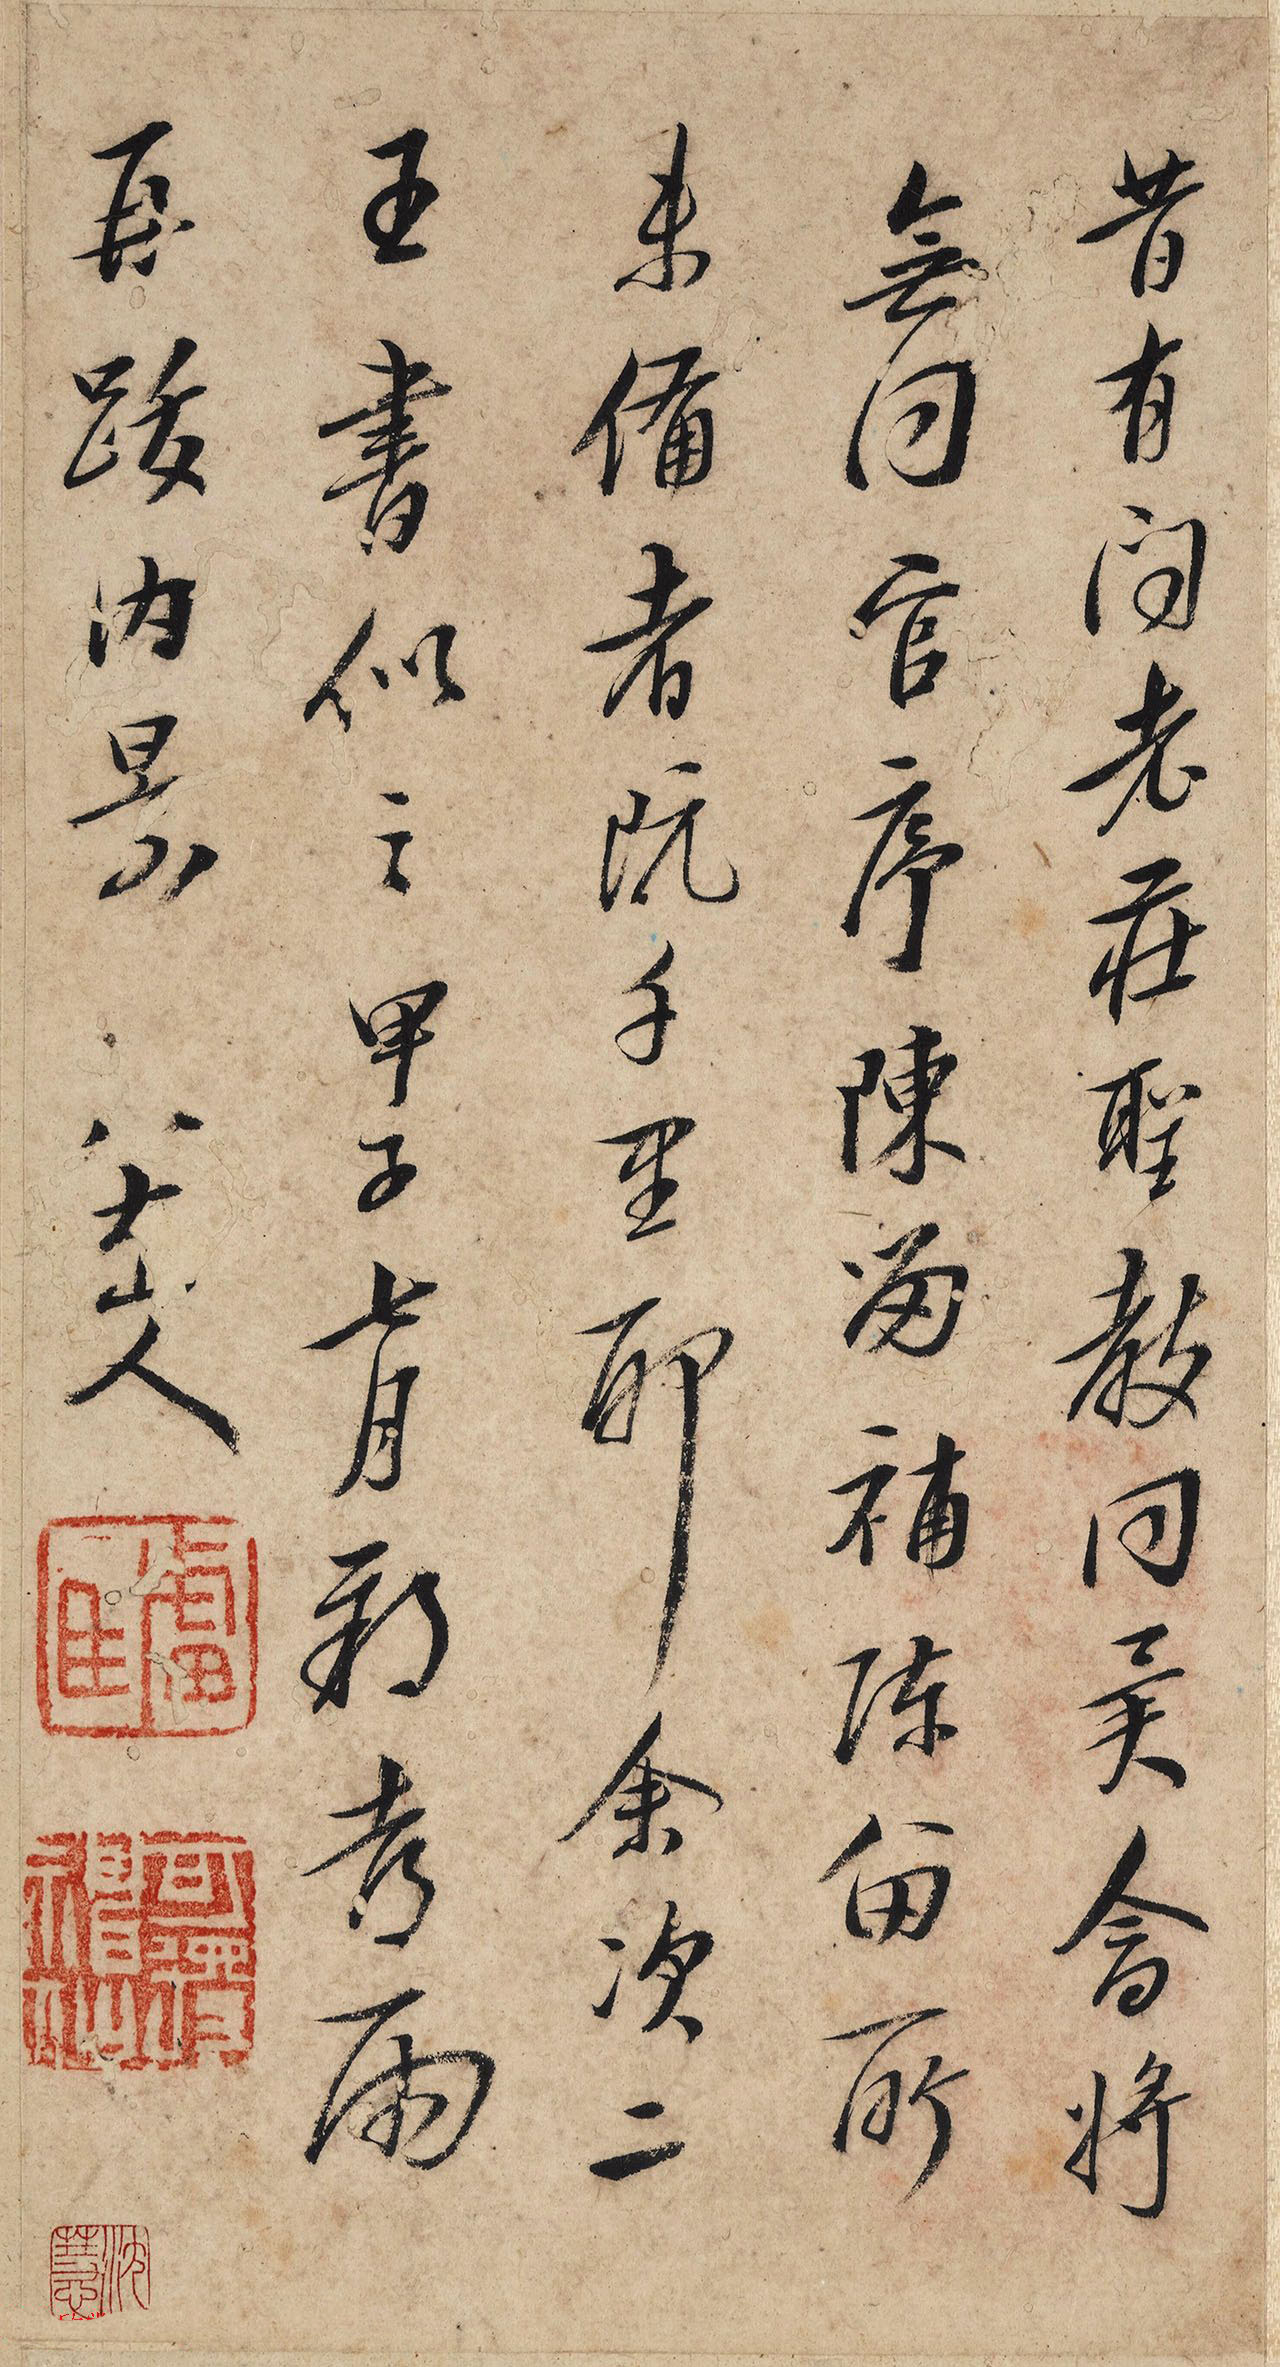 昔有問老莊聖教同異會將
無同官序陳留補陳留所
未備者阮千里耶余次二
王書似之甲子七月兩
再跋內景 八大山人